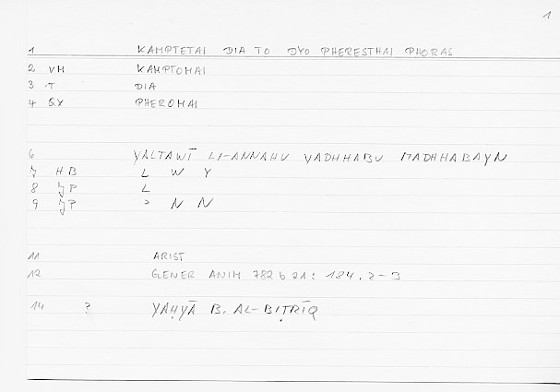 1
1 KAMPTETAI DIA TO DYO PHERESTHAI PHORAS
2 VM KAMPTOMAI
3 T DIA
4 SX PHEROMAI
6 YALTAWĪ LI-ANNAHU YADHHABU MADHHABAYN
7 HB L W Y
8 JP L
9 JP ɔ N N
11 ARIST
12 GENER ANIM 782 b 21: 184, 2-3
14 ? YAḤYĀ B. AL-BIṬRĪQ